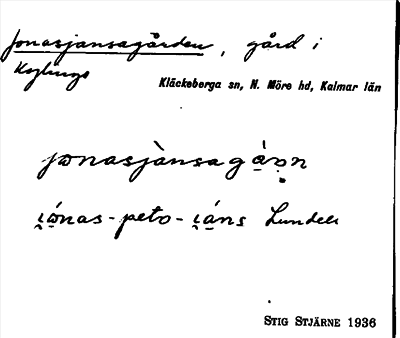 Jonasjansagården, gård i
Koglinge
Kläckeberga sn, N. Möre hd, Kalmar län
jɷnasjànsagá̱ɲn
ı̨ɷ́nas-peto-ı̨áns Lundell
STIG STJÄRNE 1936